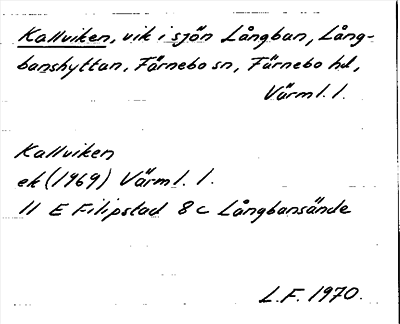 Kallviken, vik i sjön Långban, Lång-
banshyttan, Färnebo sn, Färnebo hd,
Värml. l.
Kallviken
ek (1969) Värml. l.
11 E Filipstad 8 c Långbansände
L.F. 1970.